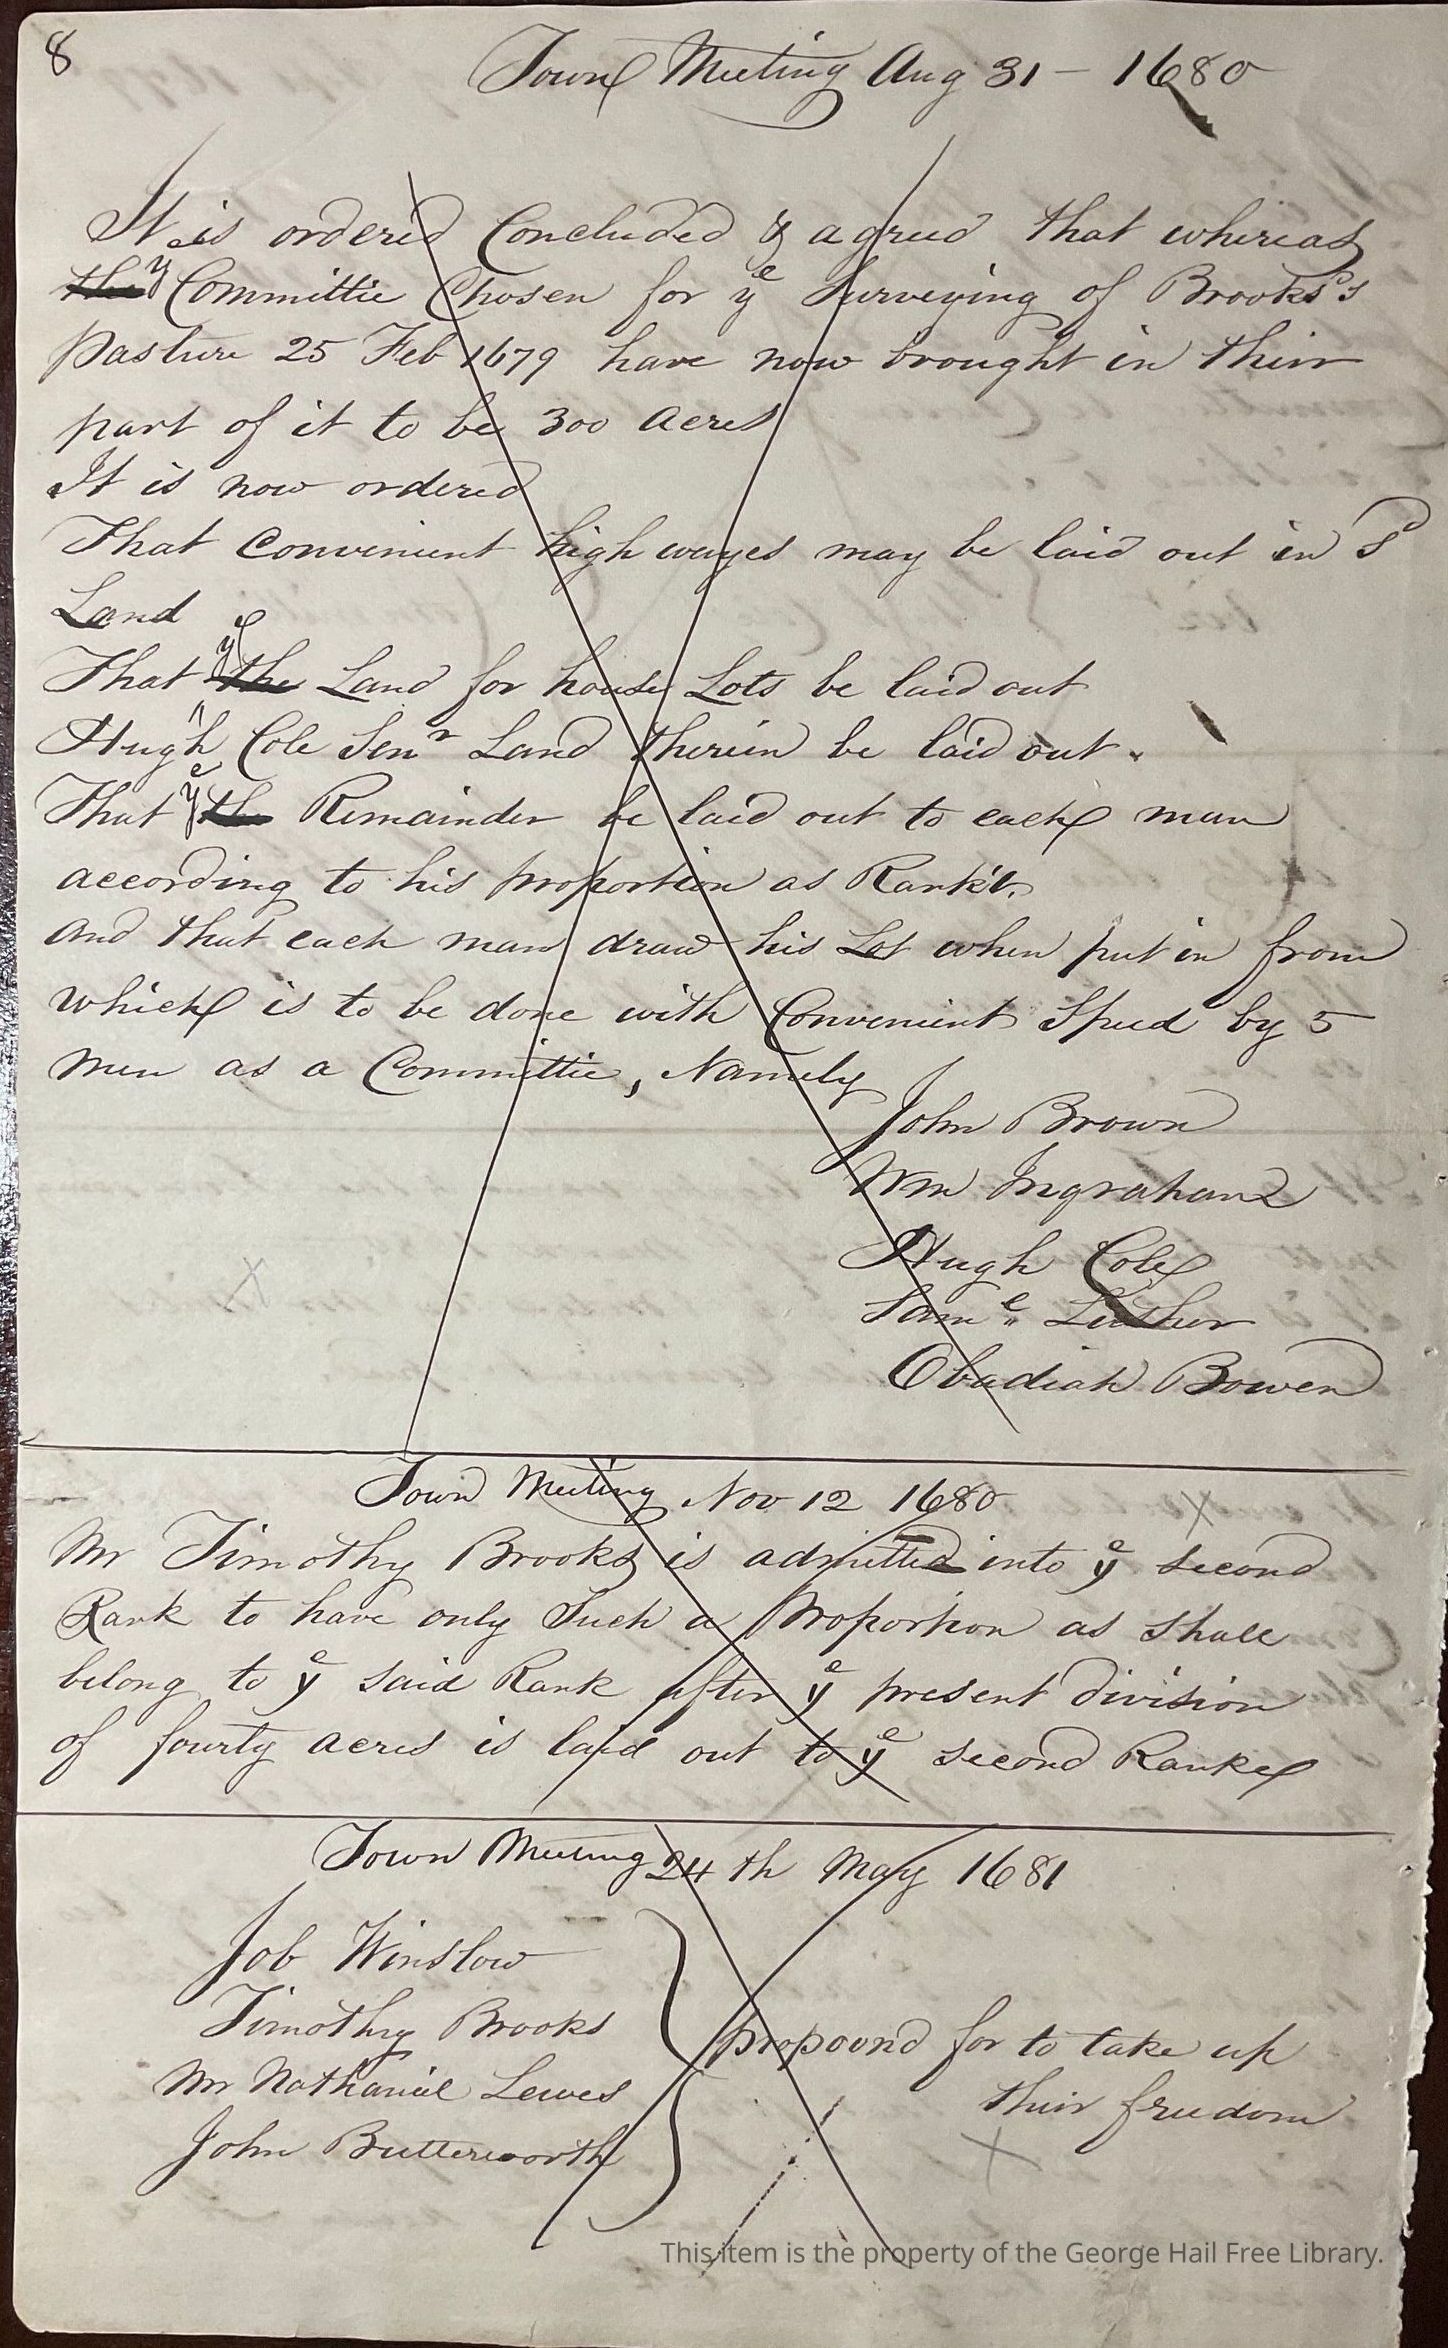 8
Town Meeting Aug 31 - 1680
It is ordered Concluded & agreed that whereas
the y Committie Chosen for ye Surveying of Brooks's
Pasture 25 Feb 1679 have now brought in their
part of it to be 300 acres
It is now ordered
That Convenient high wayes may be laid out in Sd
Land
That the ye Land for house Lots be laid out
Hugh Cole Senr Land therein be laid out.
That ye the Remainder be laid out to each man
according to his proportion as Rank't.
And that each man draw his Lot when put in from
which is to be done with Convenient Speed by 5
men as a Committie, Namely
John Brown
Wm Ingraham
Hugh Cole
Saml Luther
Obadiah Bowen
Town Meeting Nov 12 1680
Mr Timothy Brooks is admitted into ye second
Rank to have only Such a Proportion as shall
belong to ye said Rank after ye present division
of fourty acres is laid out to ye second Ranke
Town Meeting 24th May 1681
Job Winslow
Timothy Brooks
Mr Nathaniel Lewes
John Butterworth
propound for to take up
their freedom
This item is the property of the George Hail Free Library.